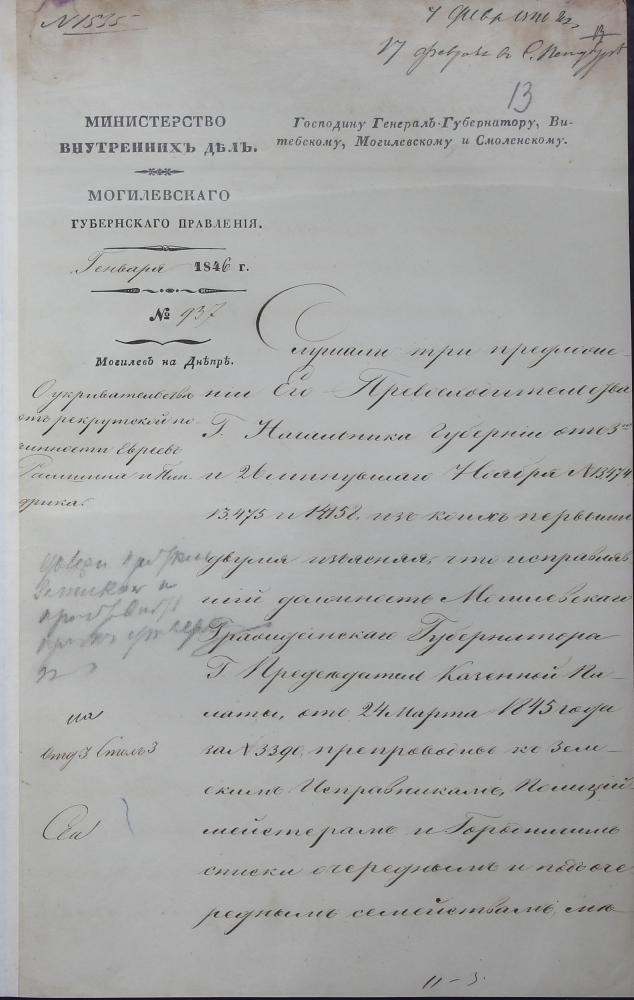 N 1535
4 Февраля
17 февраля в С.
13
МИНИСТЕРСТВО
ВНУТРЕННИХЪ ДѢЛЪ.
МОГИЛЕВСКАГО
ГУБЕРНСКАГО ПРАВЛЕНІЯ.
Генваря 1846 г.
№ 937
Могилевъ на Днѣпрѣ.
Господину Генералъ-Губернатору, Ви-
тебскому, Могилевскому и Смоленскому.
О укривательствѣ
отъ рекрутской по-
винности Евреевъ
Слушали три предложе-
ніи Его Превосходительства
Г. Начальника Губерніи отъ 3го
и 20 минувшаго Ноября N 13474
13.475 и 14158. изъ коихъ первыми
двумя изъясняя, что исправляв-
шій должность Могилевскаго
Гражданскаго Губернатора
Г. Председатель Казенной Па-
латы, отъ 24 Марта 1845 года
за N 3390, препроводилъ къ Зем-
скимъ Исправникамъ, Полицій-
мейстерамъ и Городничимъ
списки очереднымъ и подъоче-
реднымъ семействамъ,
на
Отд 3 Столъ 3
11-3.